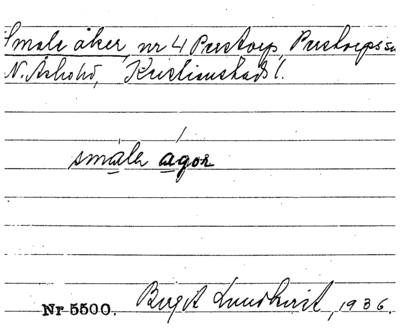 Smale åker, nr 4 Prestorp, Prestorps
N. Åsbohd, Kristianstads l.
smàlen ágor
Nr 5500. Birgit Lundkvist, 1936.